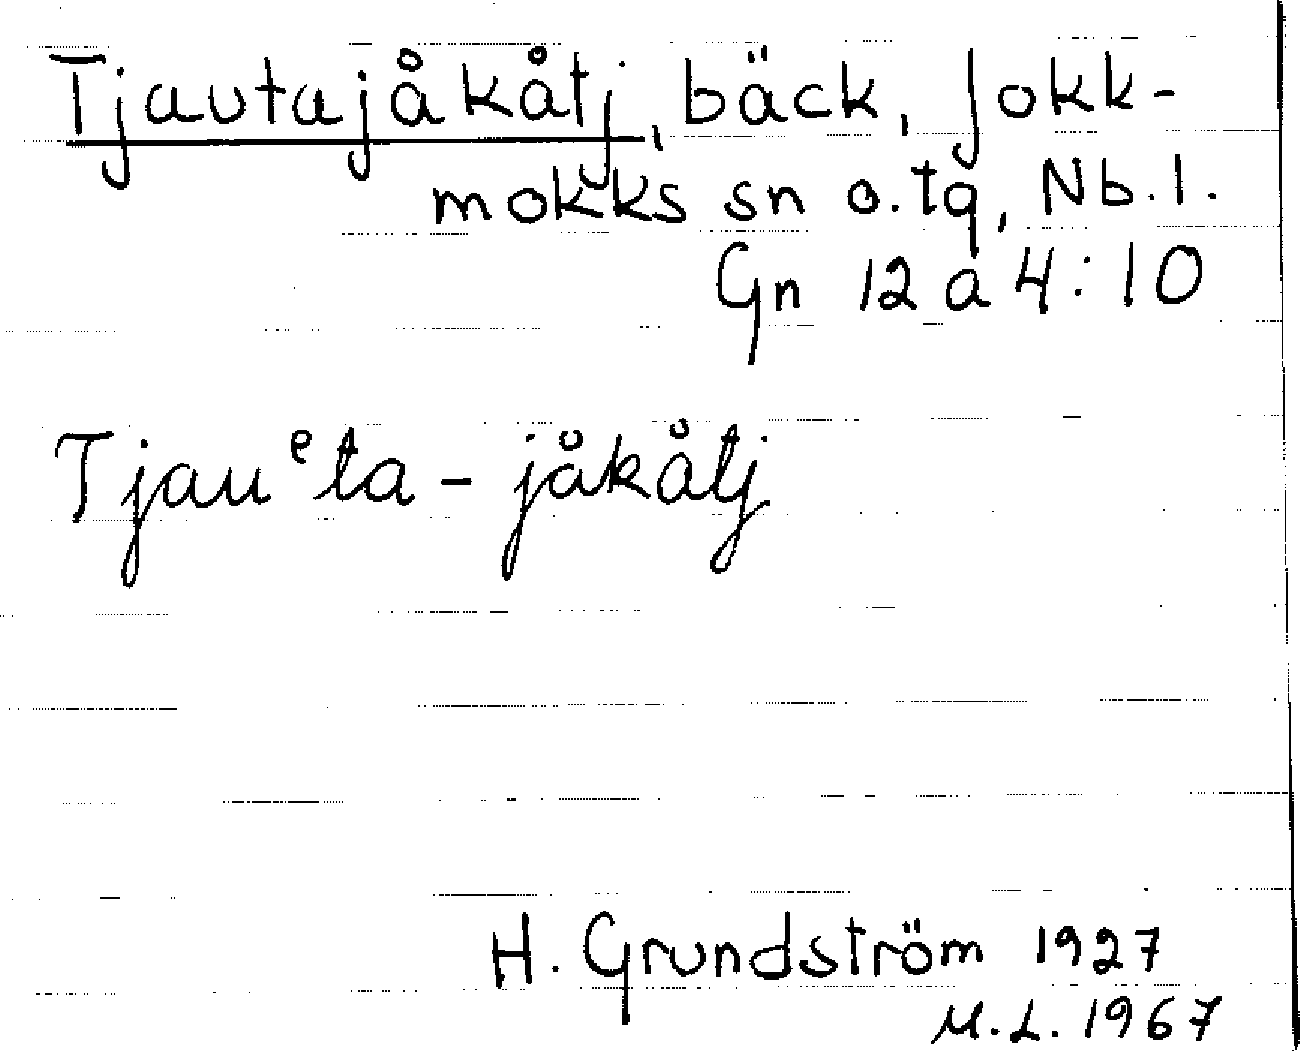 Tjautajåkåtj, bäck, Jokk-
mokks sn o. tg, Nb. l.
Gn 12 a 4:10
Tjauᵉta-jåkåtj
H. Grundström 1927
M.L. 1967